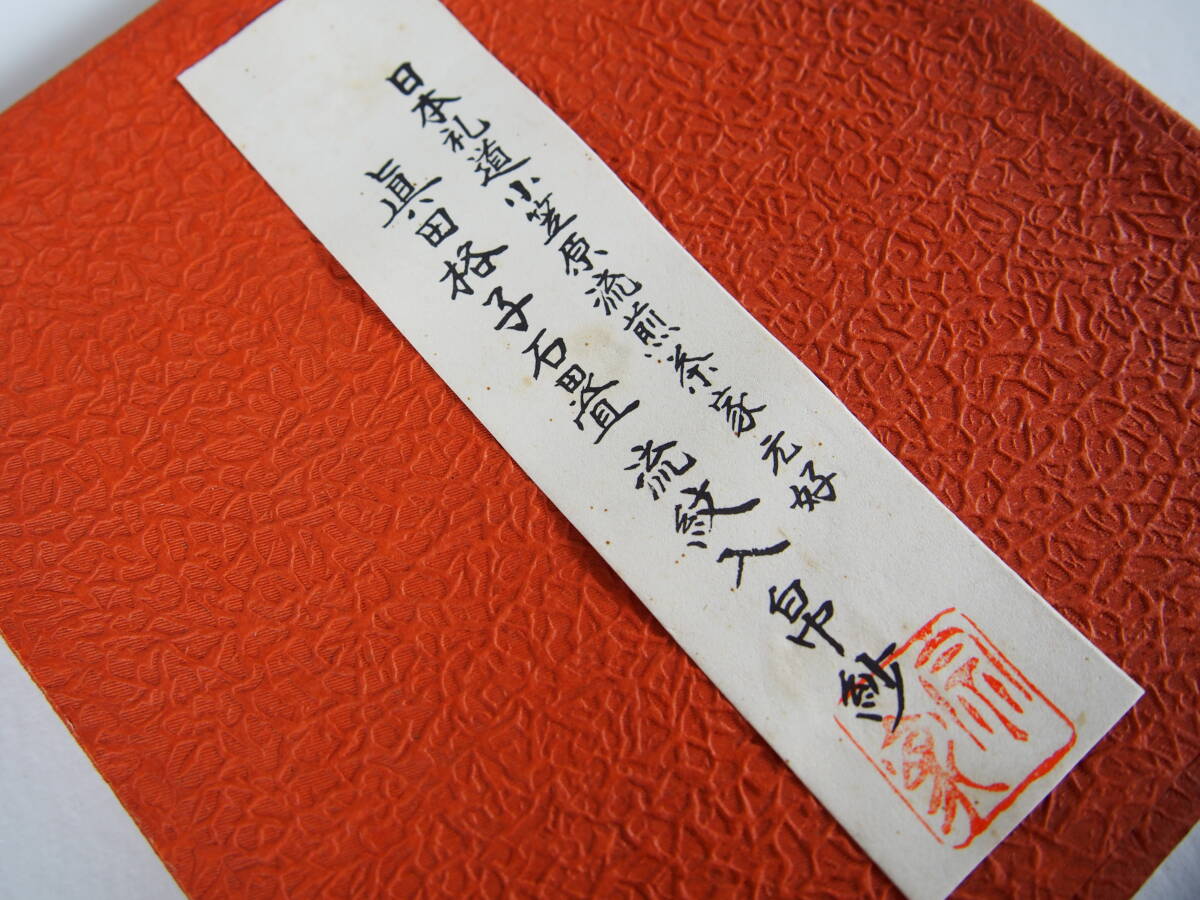 日本礼道小笠原流煎茶家元好
眞田格子石畳流紋入帛紗